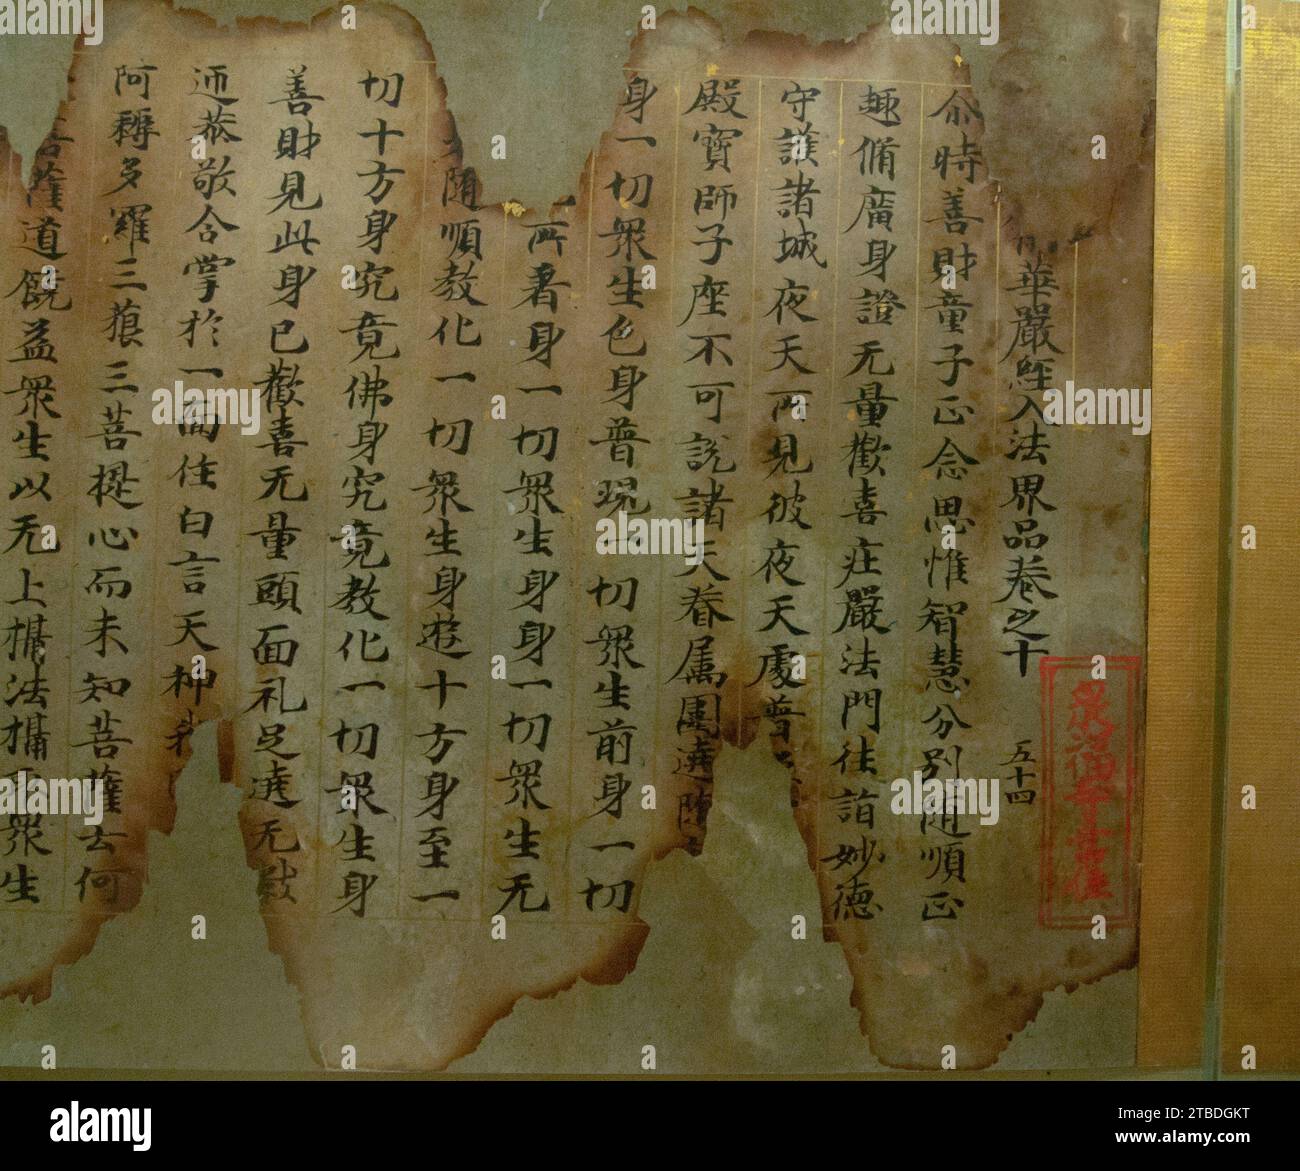 華嚴經入法界品卷之十
五十四
尒時善財童子正念思惟智慧分別随順正
趣脩廣身證无量歡喜庄嚴法門往詣妙德
守護諸城夜天所見彼夜天處普
殿寶師子座不可說諸天眷属圍遶
身一切衆生色身普現一切衆生前身一切
所著身一切衆生身身一切衆生无
随順教化一切衆生身遊十方身至一
切十方身究竟佛身究竟教化一切衆生身
善財見此身已歡喜无量頭面礼足遶无數
迊恭敬合掌於一面住白言天神我
阿耨多羅三藐三菩提心而未知菩薩云何
菩薩道饒益衆生以无上攝法攝取衆生
alamy
Image ID: 2TBDGKT
www.alamy.com